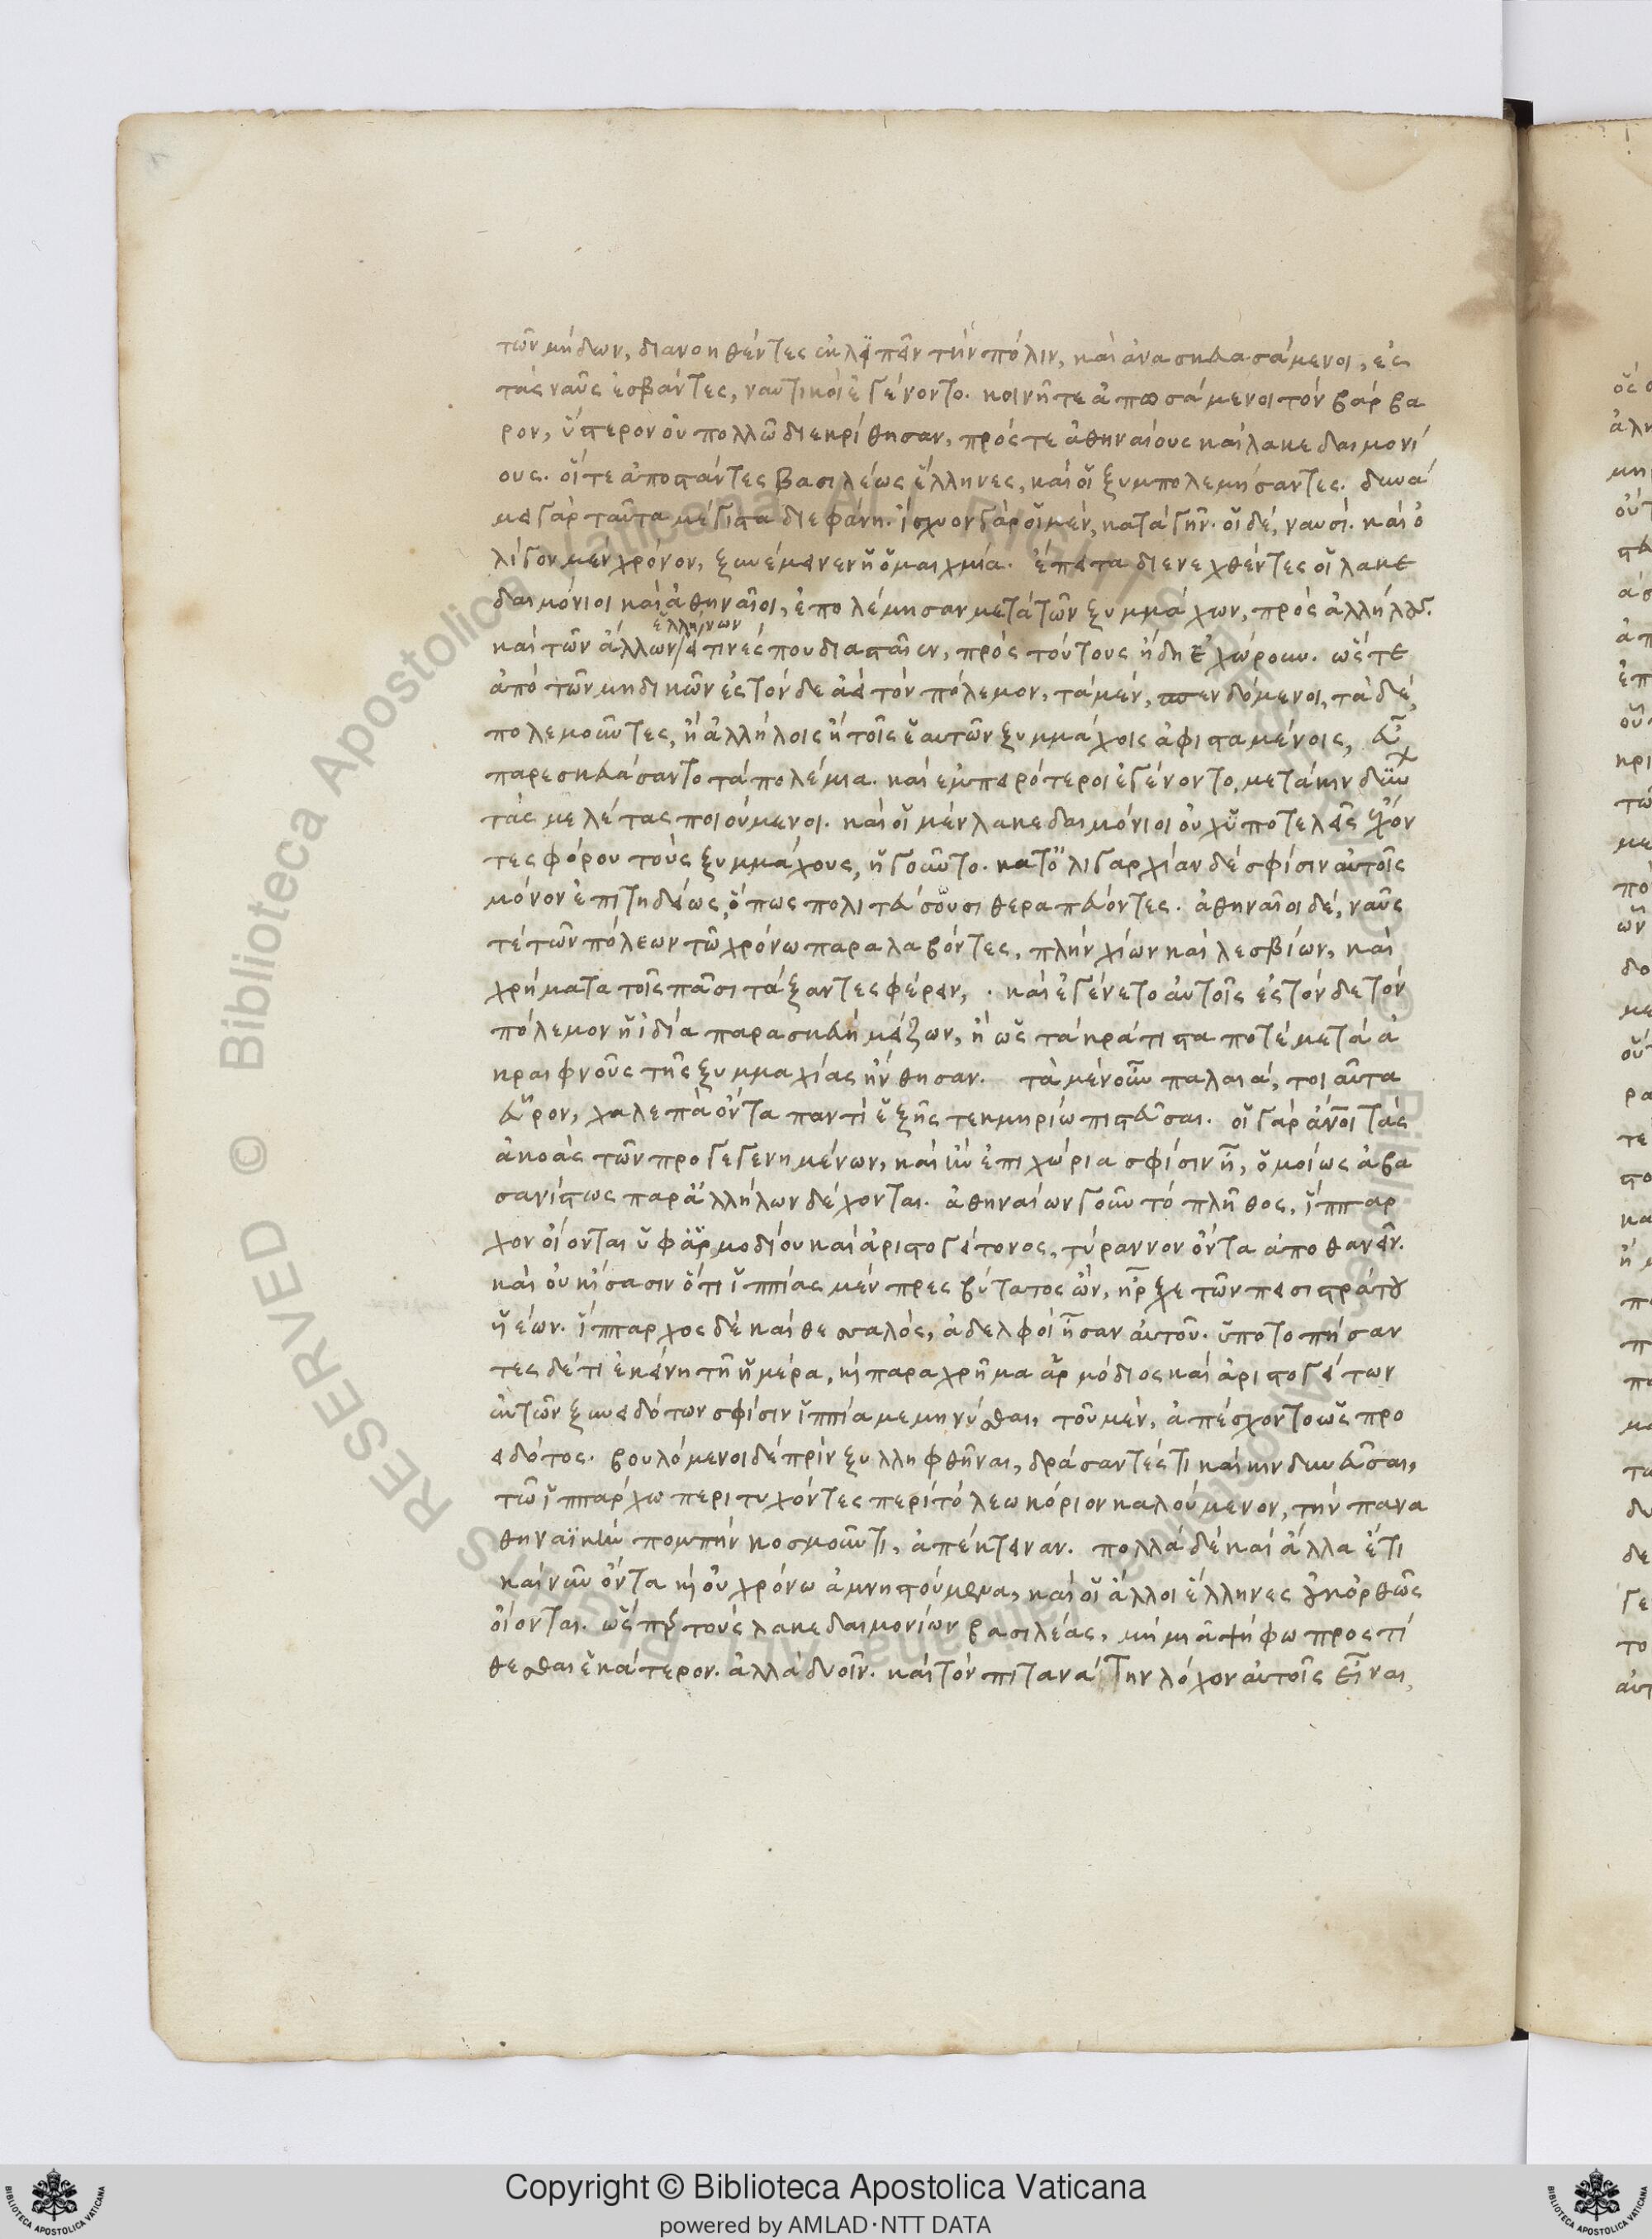 τῶν μήδων, διανοηθέντες ἐκλϊπεῖν τὴν πόλιν, καὶ ἀνασκευασάμενοι, ἐς
τὰς ναῦς ἐσβάντες, ναυτικοὶ ἐγένοντο. κοινῆ τε ἀπωσάμενοι τὸν βάρβα
ρον, ὕστερον οὐ πολλῶ διεκρίθησαν, πρός τε ἀθηναίους καὶ λακεδαιμονί
ους. οἵ τε ἀποστάντες βασιλέως ἕλληνες, καὶ οἱ ξυμπολεμήσαντες. δυνά
μει γὰρ ταῦτα μέγιστα διεφάνη. ἴσχυον γὰρ οἱ μὲν, κατὰ γῆν. οἱ δὲ, ναυσί. καὶ ὀ
λίγον μὲν χρόνον, ξυνέμεινεν ἡ ὁμαιχμία. ἔπειτα διενεχθέντες οἱ λακε
δαιμόνιοι καὶ ἀθηναῖοι, ἐπολέμησαν μετὰ τῶν ξυμμάχων, πρὸς ἀλλήλους.
ἑλλήνων
καὶ τῶν ἄλλων εἴ τινές που διασταῖεν, πρὸς τούτους ἤδη ἐχώρουν. ὥστε
ἀπὸ τῶν μηδικῶν ἐς τόνδε ἀεὶ τὸν πόλεμον, τὰ μὲν, σπενδόμενοι, τὰ δὲ,
πολεμοῦντες, ἢ ἀλλήλοις ἢ τοῖς ἑαυτῶν ξυμμάχοις ἀφισταμένοις, εὖ
παρεσκευάσαντο τὰ πολέμια. καὶ ἐμπειρότεροι ἐγένοντο, μετὰ κινδύνων
τὰς μελέτας ποιούμενοι. καὶ οἱ μὲν λακεδαιμόνιοι οὐχ ὑποτελεῖς ἔχον
τες φόρου τοὺς ξυμμάχους, ἡγοῦντο. κατ' ὀλιγαρχίαν δὲ σφίσιν αὐτοῖς
μόνον ἐπιτηδείως, ὅπως πολιτεύσουσι θεραπεύοντες. ἀθηναῖοι δὲ, ναῦς
τὲ τῶν πόλεων τῶ χρόνω παραλαβόντες, πλὴν χίων καὶ λεσβίων, καὶ
χρήματα τοῖς πᾶσι τάξαντες φέρειν, . καὶ ἐγένετο αὐτοῖς ἐς τόνδε τὸν
πόλεμον ἡ ἰδία παρασκευὴ μείζων, ἢ ὡς τὰ κράτιστα ποτὲ μετὰ ἀ
κραιφνοῦς τῆς ξυμμαχίας ἤνθησαν. τὰ μὲν οὖν παλαιὰ, τοιαῦτα
εὗρον, χαλεπὰ ὄντα παντὶ ἑξῆς τεκμηρίω πιστεῦσαι. οἱ γὰρ ἄνοι τὰς
ἀκοὰς τῶν προγεγενημένων, καὶ ἢν ἐπιχώρια σφίσιν ἦ, ὁμοίως ἀβα
σανίστως παρ' ἀλλήλων δέχονται. ἀθηναίων γοῦν τὸ πλῆθος, ἵππαρ
χον οἴονται ὑφ' ἁρμοδίου καὶ ἀριστογείτονος, τύραννον ὄντα ἀποθανεῖν.
καὶ οὐκ ἴσασιν ὅτι ἱππίας μὲν πρεσβύτατος ὢν, ἦρχε τῶν πεισιστράτου
υἱέων. ἵππαρχος δὲ καὶ θεσσαλὸς, ἀδελφοὶ ἦσαν αὐτοῦ. ὑποτοπήσαν
τες δέ τι ἐκείνη τῆ ἡμέρα, καὶ παραχρῆμα ἁρμόδιος καὶ ἀριστογείτων
ἐκ τῶν ξυνειδότων σφίσιν ἱππία μεμηνύσθαι, τοῦ μὲν, ἀπέσχοντο ὡς προ
ειδότος. βουλόμενοι δὲ πρὶν ξυλληφθῆναι, δράσαντές τι καὶ κινδυνεῦσαι,
τῶ ἱππάρχω περιτυχόντες περὶ τὸ λεωκόριον καλούμενον, τὴν πανα
θηναϊκὴν πομπὴν κοσμοῦντι, ἀπέκτειναν. πολλὰ δὲ καὶ ἄλλα ἔτι
καὶ νῦν ὄντα καὶ οὐ χρόνω ἀμνηστούμενα, καὶ οἱ ἄλλοι ἕλληνες οὐκ ὀρθῶς
οἴονται. ὥσπερ τοὺς λακεδαιμονίων βασιλέας, μὴ μιᾶ ψήφω προστί
θεσθαι ἑκάτερον. ἀλλὰ δυοῖν. καὶ τὸν πιτανάτην λόχον αὐτοῖς εἶναι,